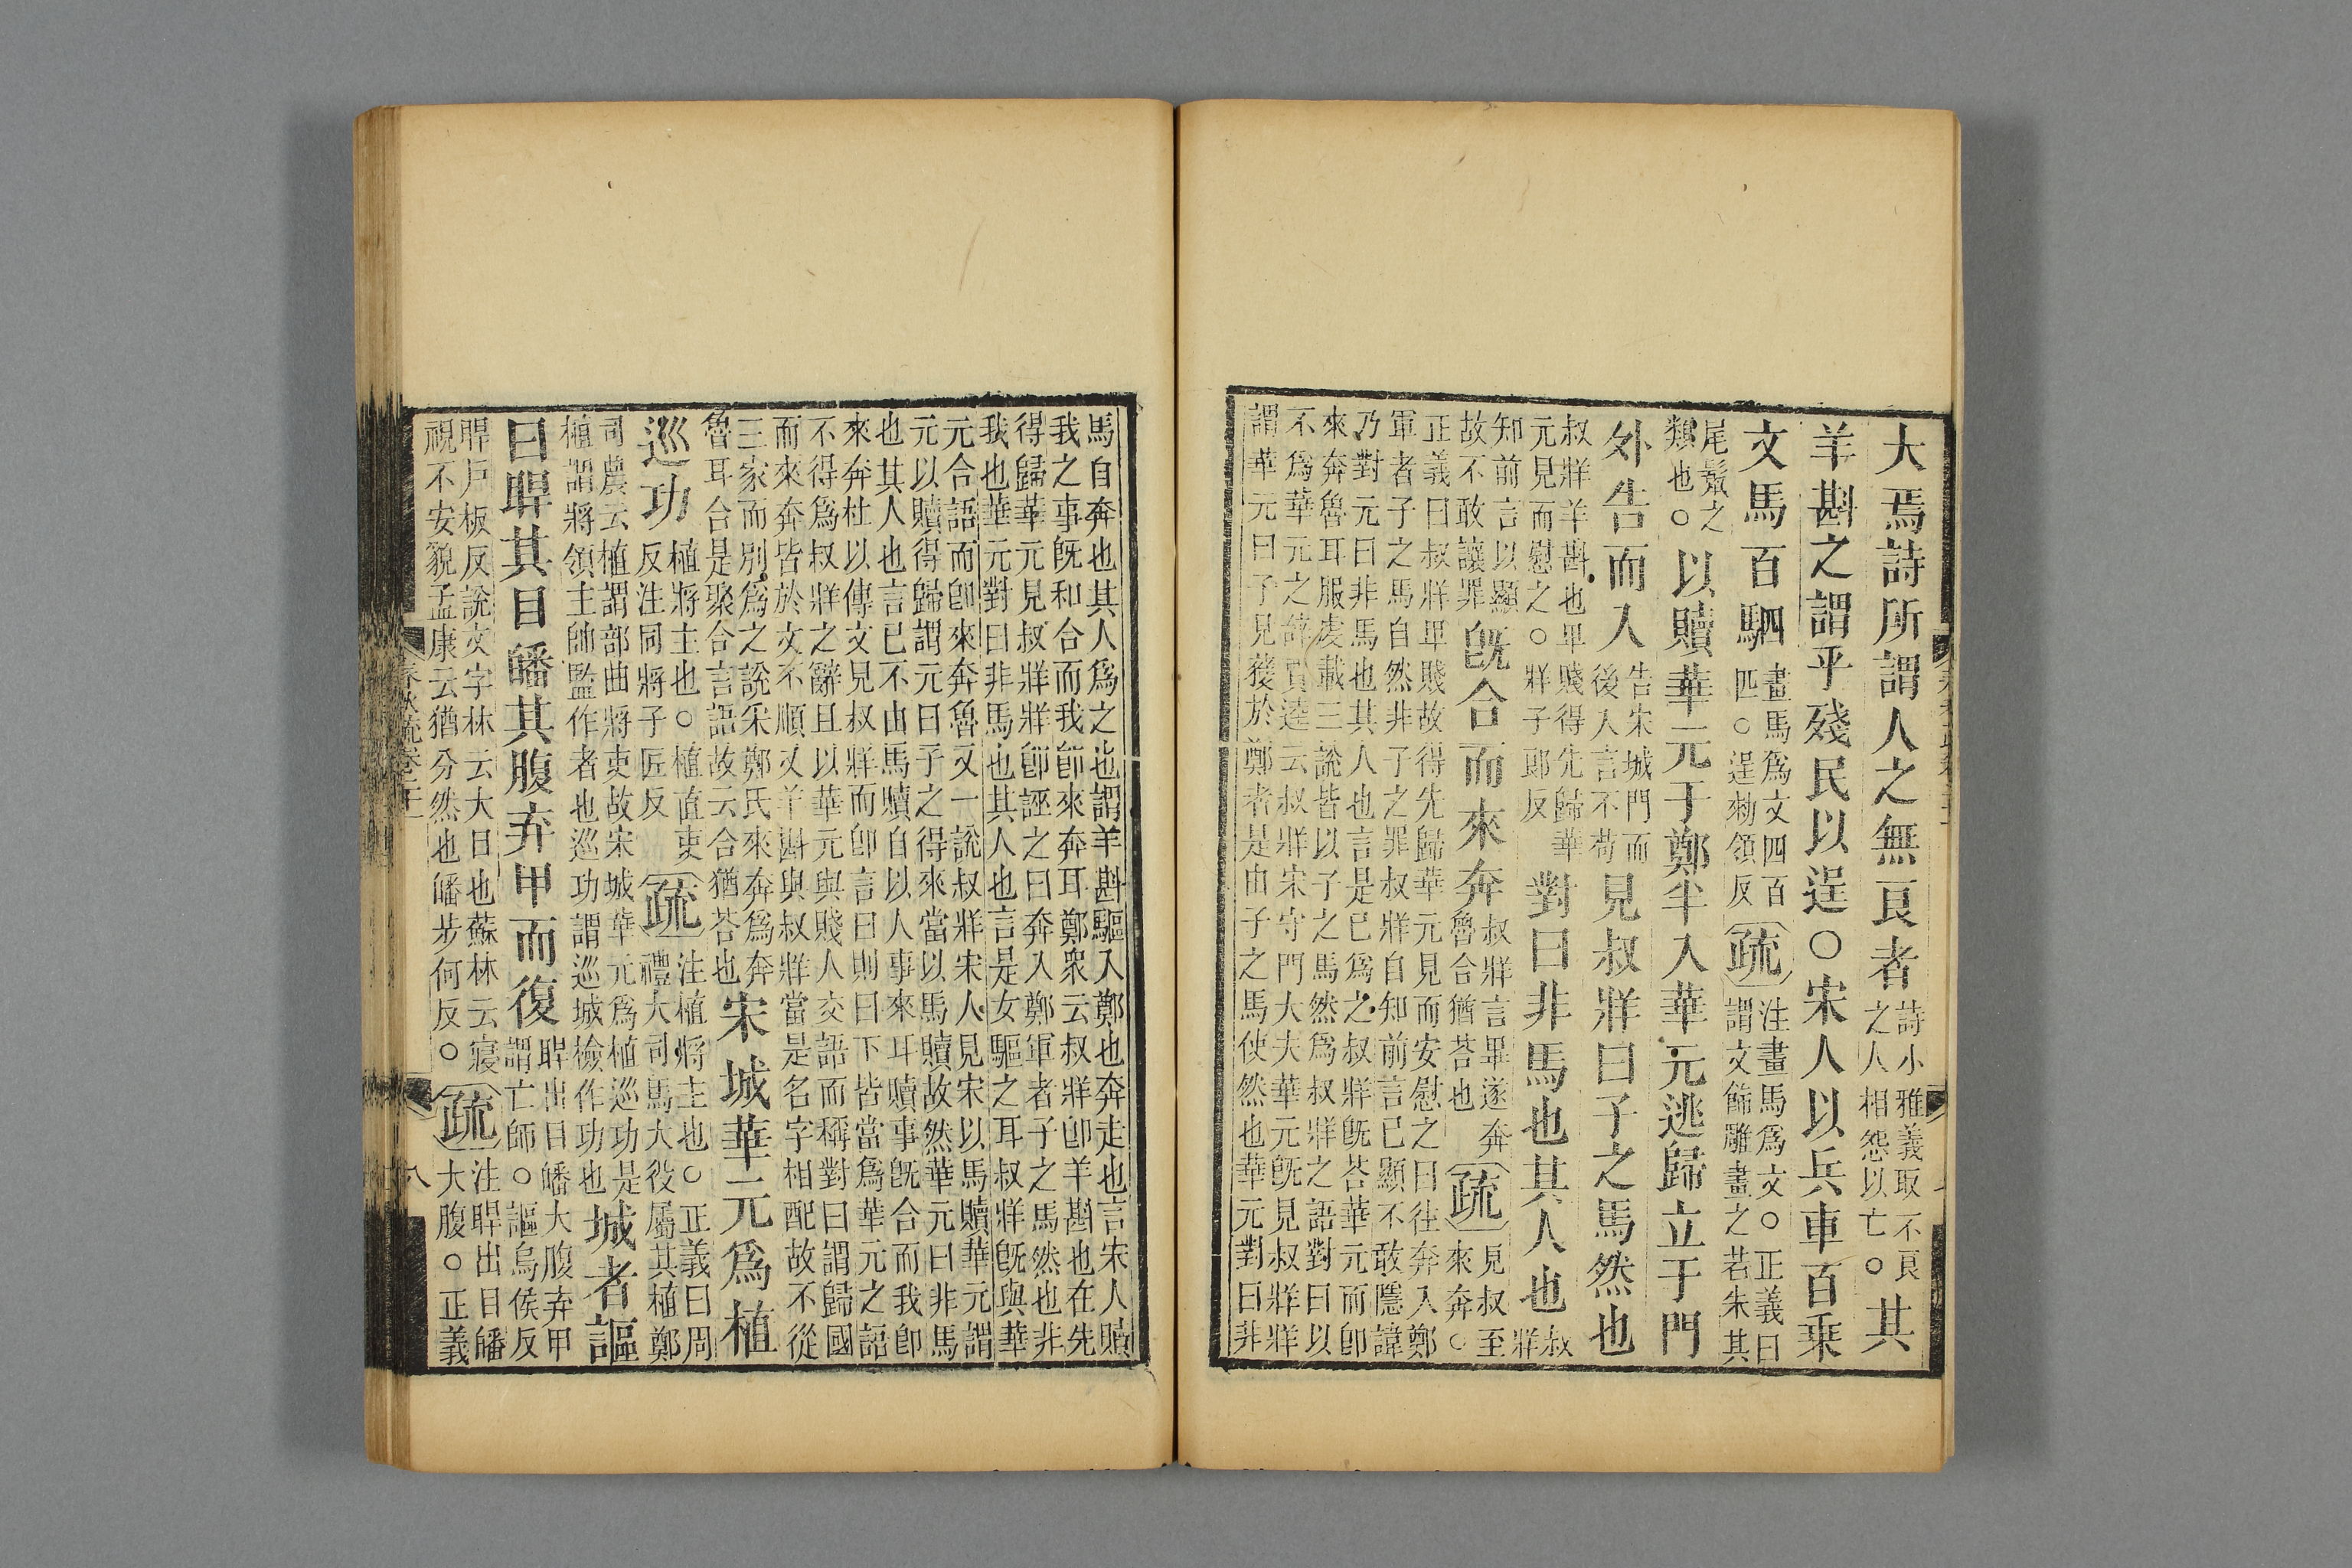 大焉詩所謂人之無良者詩小雅義取不良
之人相怨以亡。其
羊斟之謂乎殘民以逞○宋人以兵車百乘
文馬百駟畫馬爲文四百
匹。逞勑領反疏注畫馬爲文。正義曰
謂文飾雕畫之若朱其
尾鬣之
類也。以贖華元于鄭半入華元逃歸立于門
外告而入告宋城門而
後入言不苟見叔牂曰子之馬然也
叔牂羊斟也卑賤得先歸華
元見而慰之。牂子郎反對曰非馬也其人也叔
牂
知前言以顯
故不敢讓罪旣合而來奔叔牂言畢遂奔
魯合猶荅也疏見叔至
來奔。
正義曰叔牂卑賤故得先歸華元見而安慰之曰往奔入鄭
軍者子之馬自然非子之罪叔牂自知前言已顯不敢隱諱
乃對元曰非馬也其人也言是已爲之叔牂旣荅華元而卽
來奔魯耳服虔載三說皆以子之馬然爲叔牂之語對曰以
不爲華元之辭賈逵云叔牂宋守門大夫華元旣見叔牂牂
謂華元曰子見獲於鄭者是由子之馬使然也華元對曰非
馬自奔也其人爲之也謂羊斟驅入鄭也奔走也言宋人贖
我之事旣和合而我卽來奔耳鄭衆云叔牂卽羊斟也在先
得歸華元見叔牂牂卽誣之曰奔入鄭軍者子之馬然也非
我也華元對曰非馬也其人也言是女驅之耳叔牂旣與華
元合語而卽來奔魯又一說叔牂宋人見宋以馬贖華元謂
元以贖得歸謂元曰子之得來當以馬贖故然華元曰非馬
也其人也言已不由馬贖自以人事來耳贖事旣合而我卽
來奔杜以傳文見叔牂而卽言曰則曰下皆當爲華元之語
不得爲叔牂之辭且以華元與賤人交語而稱對曰謂歸國
而來奔皆於文不順又羊斟與叔牂當是名字相配故不從
三家而別爲之說采鄭氏來奔爲奔
魯耳合是聚合言語故云合猶荅也宋城華元爲植
巡功植將主也。植直吏
反注同將子匠反疏注植將主也。正義曰周
禮大司馬大役屬其植鄭
司農云植謂部曲將吏故宋城華元爲植巡功是
植謂將領主帥監作者也巡功謂巡城檢作功也城者謳
曰睅其目皤其腹弃甲而復睅出目皤大腹弃甲
謂亡師。謳烏侯反
睅戶板反說文字林云大目也蘇林云寢
視不安貌孟康云猶分然也皤步何反。疏注睅出目皤
大腹。正義